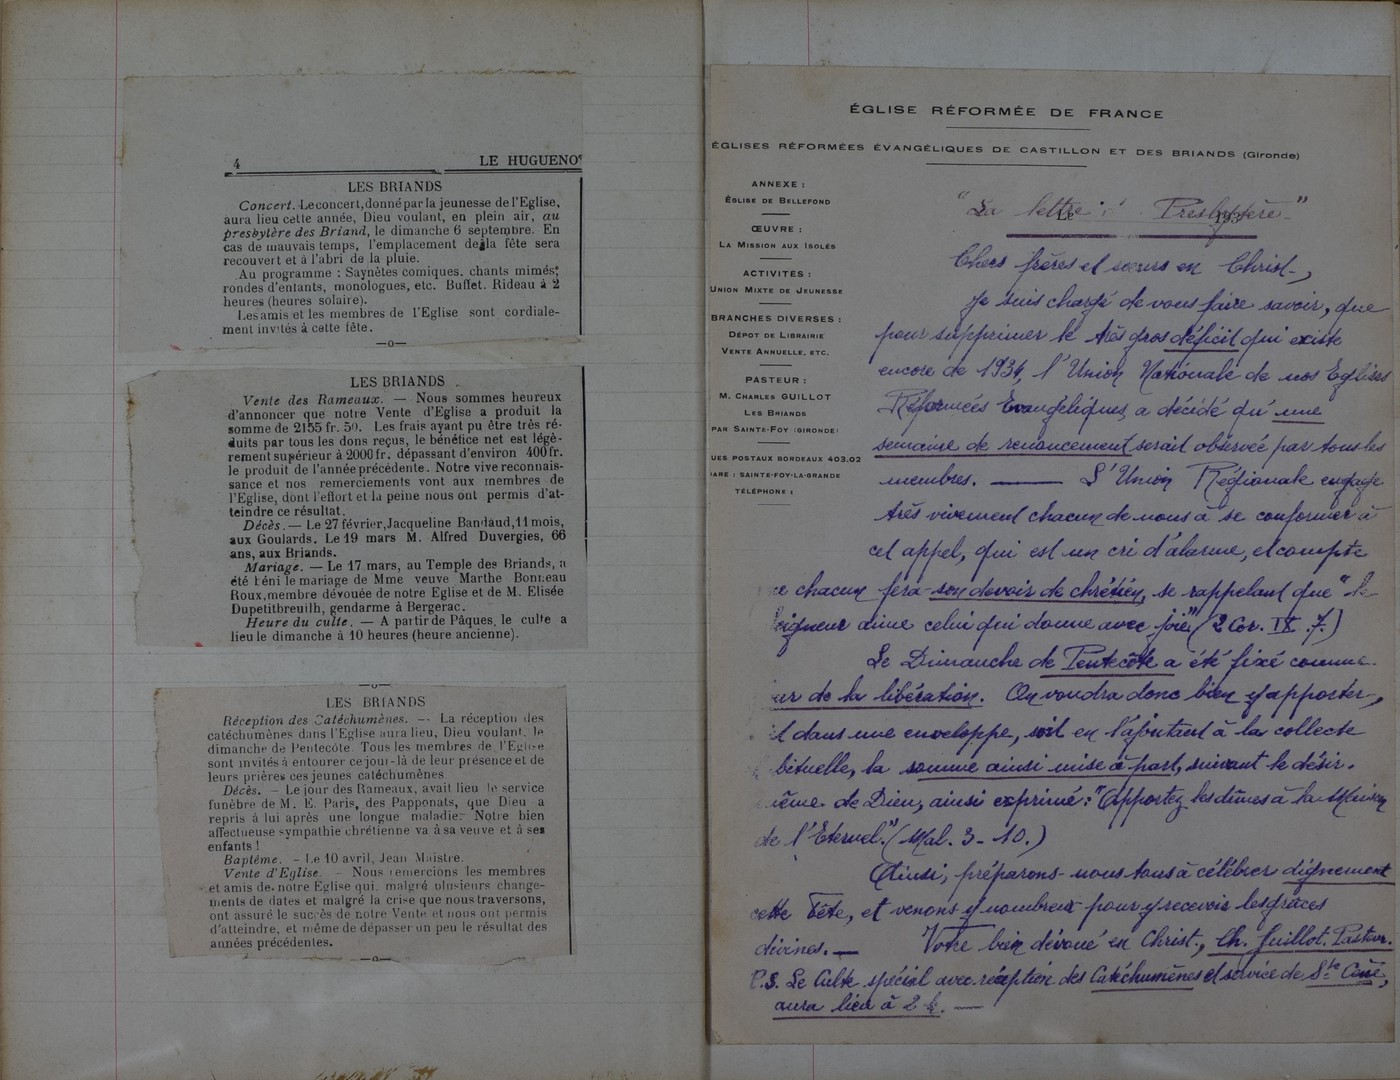 4 LE HUGUENO
LES BRIANDS
Concert. Le concert, donné par la jeunesse de l'Eglise,
aura lieu cette année, Dieu voulant, en plein air, au
presbytère des Briand, le dimanche 6 septembre. En
cas de mauvais temps, l'emplacement de la fête sera
recouvert et à l'abri de la pluie.
Au programme : Saynètes comiques. chants mimés,
rondes d'enfants, monologues, etc. Buffet. Rideau à 2
heures (heures solaire).
Les amis et les membres de l'Eglise sont cordiale-
ment invités à cette fête.
—o—
LES BRIANDS
Vente des Rameaux. — Nous sommes heureux
d'annoncer que notre Vente d'Eglise a produit la
somme de 2155 fr. 50. Les frais ayant pu être très ré-
duits par tous les dons reçus, le bénéfice net est légè-
rement supérieur à 2000 fr. dépassant d'environ 400 fr.
le produit de l'année précédente. Notre vive reconnais-
sance et nos remerciements vont aux membres de
l'Eglise, dont l'effort et la peine nous ont permis d'at-
teindre ce résultat.
Décès. — Le 27 février, Jacqueline Bandaud, 11 mois,
aux Goulards. Le 19 mars M. Alfred Duvergies, 66
ans, aux Briands.
Mariage. — Le 17 mars, au Temple des Briands, a
été béni le mariage de Mme veuve Marthe Bonneau
Roux, membre dévouée de notre Eglise et de M. Elisée
Dupetitbreuilh, gendarme à Bergerac.
Heure du culte. — A partir de Pâques, le culte a
lieu le dimanche à 10 heures (heure ancienne).
—o—
LES BRIANDS
Réception des Catéchumènes. — La réception des
catéchumènes dans l'Eglise aura lieu, Dieu voulant, le
dimanche de Pentecôte. Tous les membres de l'Eglise
sont invités à entourer ce jour-là de leur présence et de
leurs prières ces jeunes catéchumènes
Décès. — Le jour des Rameaux, avait lieu le service
funèbre de M. E. Paris, des Papponats, que Dieu a
repris à lui après une longue maladie. Notre bien
affectueuse sympathie chrétienne va à sa veuve et à ses
enfants !
Baptême. — Le 10 avril, Jean Maistre.
Vente d'Eglise. — Nous remercions les membres
et amis de notre Eglise qui, malgré plusieurs change-
ments de dates et malgré la crise que nous traversons,
ont assuré le succès de notre Vente et nous ont permis
d'atteindre, et même de dépasser un peu le résultat des
années précédentes.
—o—
ÉGLISE RÉFORMÉE DE FRANCE
ÉGLISES RÉFORMÉES ÉVANGÉLIQUES DE CASTILLON ET DES BRIANDS (Gironde)
ANNEXE :
ÉGLISE DE BELLEFOND
ŒUVRE :
LA MISSION AUX ISOLÉS
ACTIVITÉS :
UNION MIXTE DE JEUNESSE
BRANCHES DIVERSES :
DÉPOT DE LIBRAIRIE
VENTE ANNUELLE, ETC.
PASTEUR :
M. CHARLES GUILLOT
LES BRIANDS
PAR SAINTE-FOY (GIRONDE)
UES POSTAUX BORDEAUX 403.02
ARE : SAINTE-FOY-LA-GRANDE
TÉLÉPHONE :
Le 193
"La lettre Presbytère"
Chers frères et sœurs en Christ,
Je suis chargé de vous faire savoir, que
pour supprimer le très gros déficit qui existe
encore de 1934, l'Union Nationale de nos Eglises
Réformées Evangéliques, a décidé qu'une
semaine de renoncement serait observée par tous les
membres. — L'Union Régionale engage
très vivement chacun de nous à se conformer à
cet appel, qui est un cri d'alarme, et compte
e chacun fera son devoir de chrétien, se rappelant que "le
eigneur aime celui qui donne avec joie" (2 Cor. IX. 7.)
Le Dimanche de Pentecôte a été fixé comme
ur de la libération. On voudra donc bien y apporter,
it dans une enveloppe, soit en l'ajoutant à la collecte
bituelle, la somme ainsi mise à part, suivant le désir
ême de Dieu, ainsi exprimé : "Apportez les dîmes à la Maison
de l'Eternel." (Mal. 3-10.)
Ainsi, préparons-nous tous à célébrer dignement
cette Fête, et venons y nombreux pour y recevoir les grâces
divines. — Votre bien dévoué en Christ, Ch. Guillot. Pasteur.
P.S. Le Culte spécial avec réception des Catéchumènes et service de Ste Cène,
aura lieu à 2 h. —